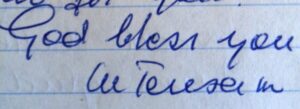 God bless you
M Teresa m